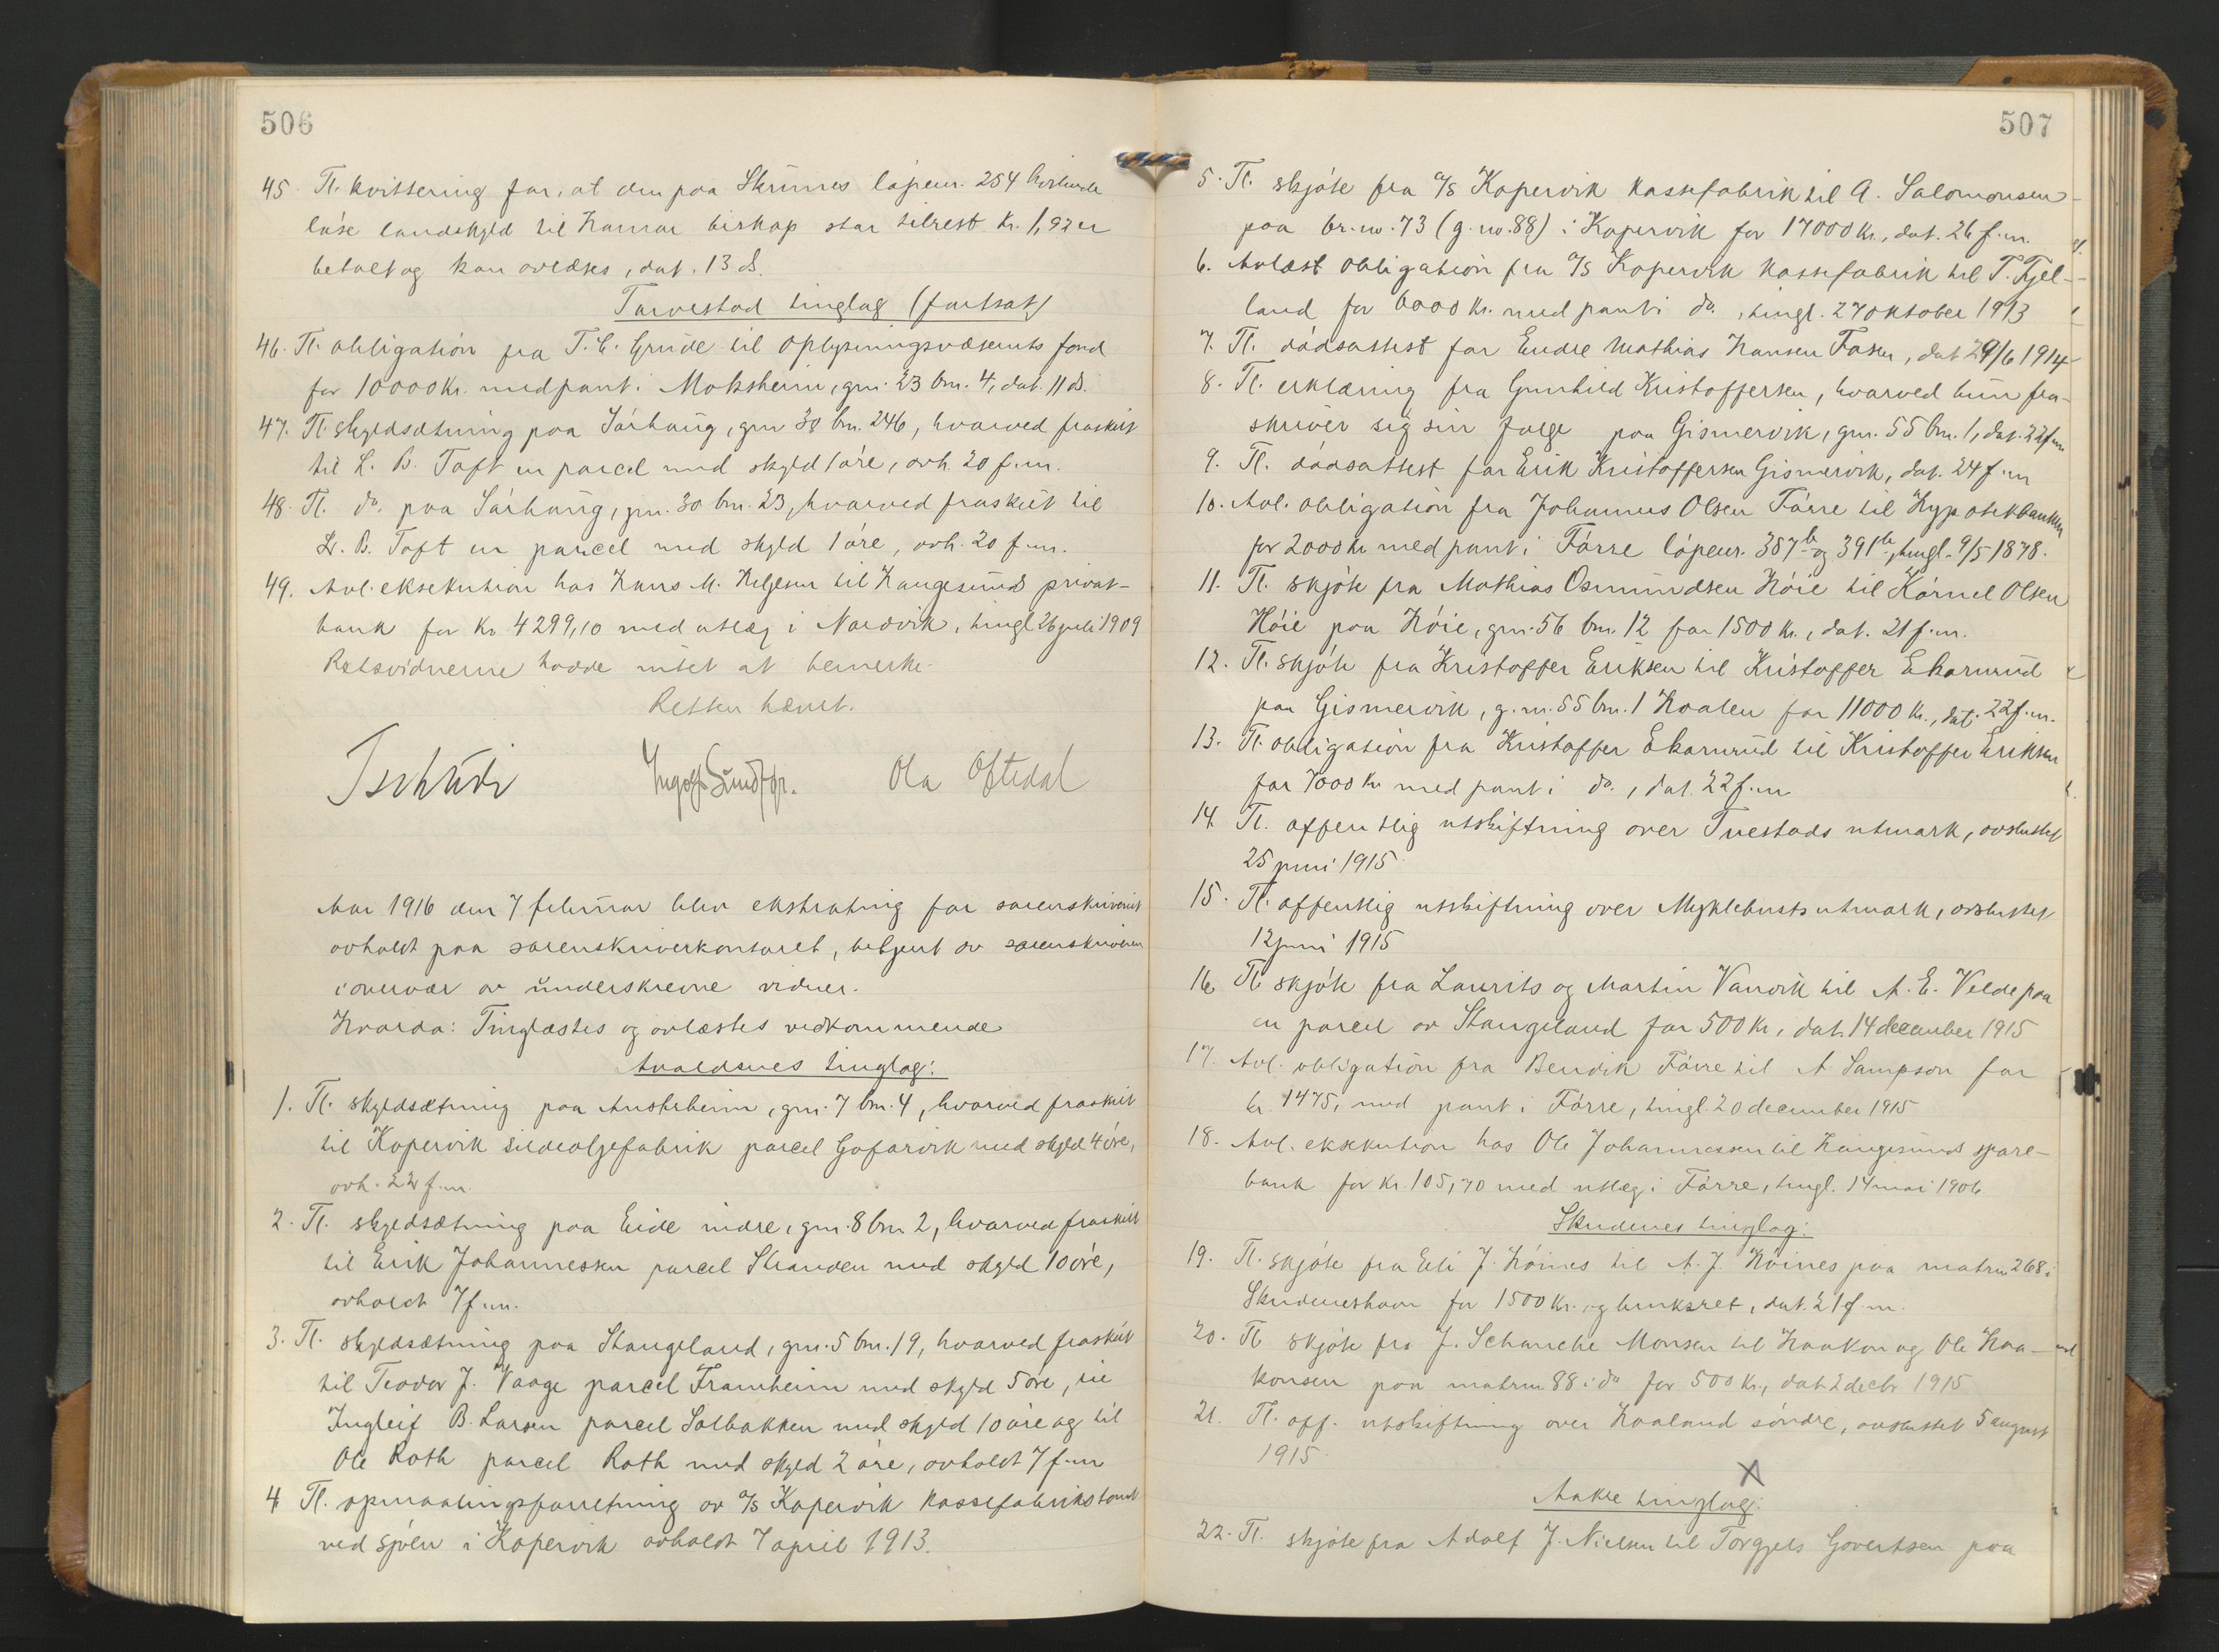 506
45. Tl. kvittering for, at den paa Skrunes løpenr. 254 hvilende
løse landskyld til Hamar biskop star tilrest kr. 1,92 er
betalt og kan avlæses, dat. 13 ds.
Torvestad tinglag (fortsat)
46. Tl. obligation fra T. C. Grude til Oplysningsvæsenets fond
for 10000 Kr. med pant i Moksheim, gnr. 23 bnr. 4, dat. 11 ds.
47. Tl. skyldsætning paa Sørhaug, gnr 30 bnr. 246, hvorved fraskilt
til L. B. Toft en parcel med skyld 1 øre, avh. 20 f.m.
48. Tl. do. paa Sørhaug, gnr. 30 bnr. 23, hvorved fraskilt til
L. B. Toft en parcel med skyld 1 øre, avh. 20 f.m.
49. Avl. eksekution hos Hans M. Helgesen til Haugesunds privat-
bank for Kr 4299,10 med utlæg i Nordvik, tingl 26 juli 1909
Retsvidnerne hadde intet at bemerke.
Retten hævet.
Tschudi Ola Oftedal
Aar 1916 den 7 februar blev ekstrating for sorenskriveriet
avholdt paa sorenskriverkontoret, betjent av sorenskriveren
i overvær av underskrevne vidner.
Hvorda: Tinglæstes og avlæstes vedkommende
Avaldsnes tinglag:
1. Tl. skyldsætning paa Austrheim, gnr. 7 bnr. 4, hvorved fraskilt
til Kopervik sildeoljefabrik parcel Gofarvik med skyld 4 øre,
avh. 22 f.m.
2. Tl. skyldsætning paa Eide indre, gnr. 8 bnr. 2, hvorved fraskilt
til Erik Johannessen parcel Stranden med skyld 10 øre,
avholdt 7 f.m.
3. Tl. skyldsætning paa Stangeland, gnr. 5 bnr. 19, hvorved fraskilt
til Teodor J. Vaage parcel Framheim med skyld 5 øre, til
Ingleif B. Larsen parcel Solbakken med skyld 10 øre og til
Ole Roth parcel Roth med skyld 2 øre, avholdt 7 f.m
4 Tl. opmaalingsforretning av A/S Kopervik Kassefabriks tomt
ved sjøen i Kopervik avholdt 7 april 1913.
507
5. Tl. skjøte fra A/S Kopervik Kassefabrik til A. Salomonsen
paa br. no. 73 (g. no. 88) i Kopervik for 17000 Kr., dat. 26 f.m.
6. Avlæst obligation fra A/S Kopervik Kassefabrik til T. Fjel-
land for 6000 Kr. med pant i do., tingl. 27 oktober 1913
7. Tl. dødsattest for Endre Mathias Hansen Fosen, dat 29/6 1914
8. Tl. erklæring fra Gunhild Kristoffersen, hvorved hun fra-
skriver sig sin folge paa Gismervik, gnr. 55 bnr. 1, dat. 22 f.m
9. Tl. dødsattest for Erik Kristoffersen Gismervik, dat. 24 f.m
10. Avl. obligation fra Johannes Olsen Førre til Hypotekbanken
for 2000 kr med pant i Førre løpenr. 387b og 391b, tingl. 9/5 1878.
11. Tl. skjøte fra Mathias Osmundsen Høie til Kørnel Olsen
Høie paa Høie, gnr. 56 bnr. 12 for 1500 Kr., dat. 21 f.m.
12. Tl. skjøte fra Kristoffer Eriksen til Kristoffer Ekornrud
paa Gismervik, g.nr. 55 bnr. 1 Hoalen for 11000 Kr., dat. 22 f.m.
13. Tl. obligation fra Kristoffer Ekornrud til Kristoffer Eriksen
for 7000 Kr med pant i do., dat. 22 f.m
14. Tl. offentlig utskiftning over Tuestads utmark, avsluttet
25 juni 1915.
15. Tl. offentlig utskiftning over Myklebusts utmark, avsluttet
12 juni 1915
16 Tl skjøte fra Laurits og Martin Vanvik til A. E. Velde paa
en parcel av Stangeland for 500 Kr, dat. 14 december 1915
17. Avl. obligation fra Bendik Førre til A Sampson for
kr. 1475, med pant i Førre, tingl. 20 december 1915
18. Avl. eksekution hos Ole Johannessen til Haugesunds spare-
bank for kr. 105,70 med utlæg i Førre, tingl. 14 mai 1906
Skudenes tinglag:
19. Tl. skjøte fra Eli J. Høines til A. J. Høines paa matrnr 268 i
Skudeneshavn for 1500 Kr. og bruksret, dat. 21 f.m.
20. Tl skjøte fra J. Schanche Monsen til Haakon og Ole Haa-
konsen paa matrnr 88 i do for 500 Kr., dat 2 decbr 1915
21. Tl. off. utskiftning over Haaland søndre, avsluttet 5 august
1915.
X
Aakre tinglag:
22. Tl. skjøte fra Adolf J. Nielsen til Torgjels Govertsen paa